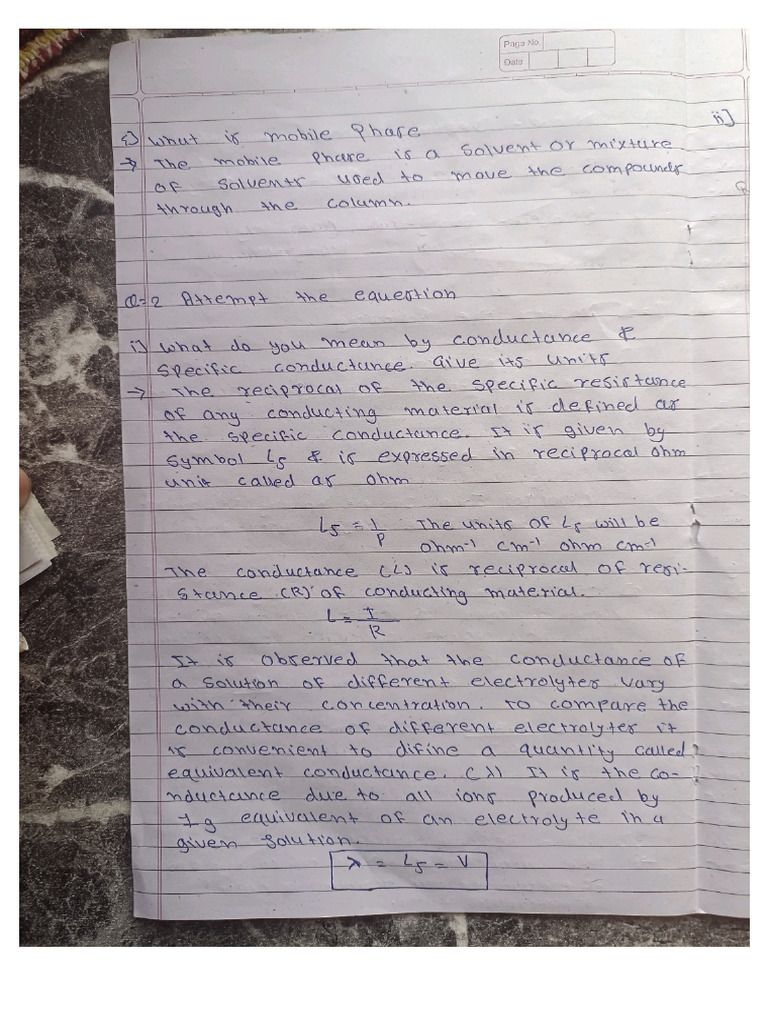 Page No.
Date
ii]
i) What is mobile Phase
→ The mobile phase is a solvent or mixture
of solvents used to move the compounds
through the column.
Q=2 Attempt the equestion
i] What do you mean by conductance &
specific conductance. Give its units
→ The reciprocal of the specific resistance
of any conducting material is defined as
the specific conductance. It is given by
symbol Ls & is expressed in reciprocal ohm
unit called as ohm
Ls = 1/P The units of Ls will be
ohm-1 cm-1 ohm cm-1
The conductance (L) is reciprocal of resi-
stance (R) of conducting material.
L = I/R
It is observed that the conductance of
a solution of different electrolytes vary
with their concentration. To compare the
conductance of different electrolytes it
is convenient to difine a quantity called
equivalent conductance. (λ) It is the co-
nductance due to all ions produced by
1 g equivalent of an electrolyte in a
given solution.
λ = Ls = V